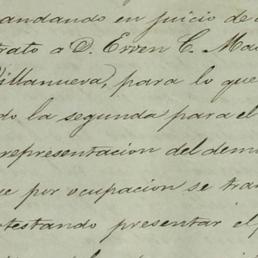 andando en juicio de
trato a D. Erven C. Mac
Villanueva, para lo que
do la segunda para el
representacion del dem
ue por ocupacion se tra
testando presentar el